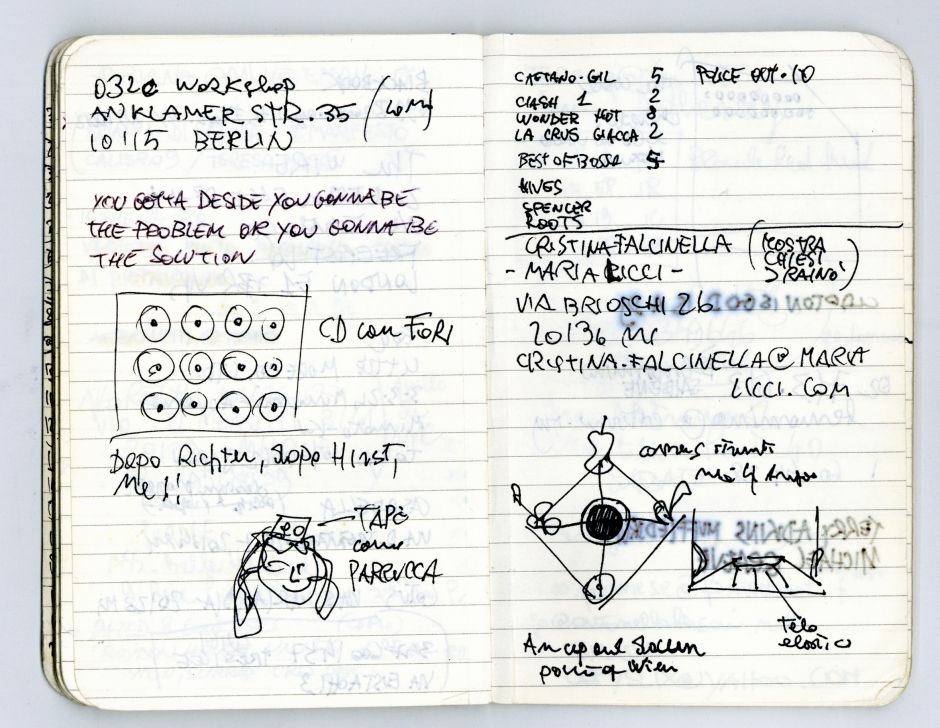 032c WORKSHOP
ANKLAMER STR. 35
10115 BERLIN
YOU GOTTA DESIDE YOU GONNA BE
THE PROBLEM OR YOU GONNA BE
THE SOLUTION
CD con FORI
Dopo Richter, dopo Hirst,
Me!!
TAPE
come
PARRUCCA
CAETANO-GIL 5
CLASH 1 2
WONDER HOT 8
LA CRUS GIACCA 2
BEST OF BOSSA 5
HIVES
SPENCER
ROOTS
POLICE OUT. 10
CRISTINA FALCINELLA
- MARIA LICCI -
(MOSTRA
CHIESI
DRAINO)
VIA BRIOSCHI 26
20136 MI
CRISTINA.FALCINELLA@MARIA
LICCI.COM
nei 4
Telo
elastico